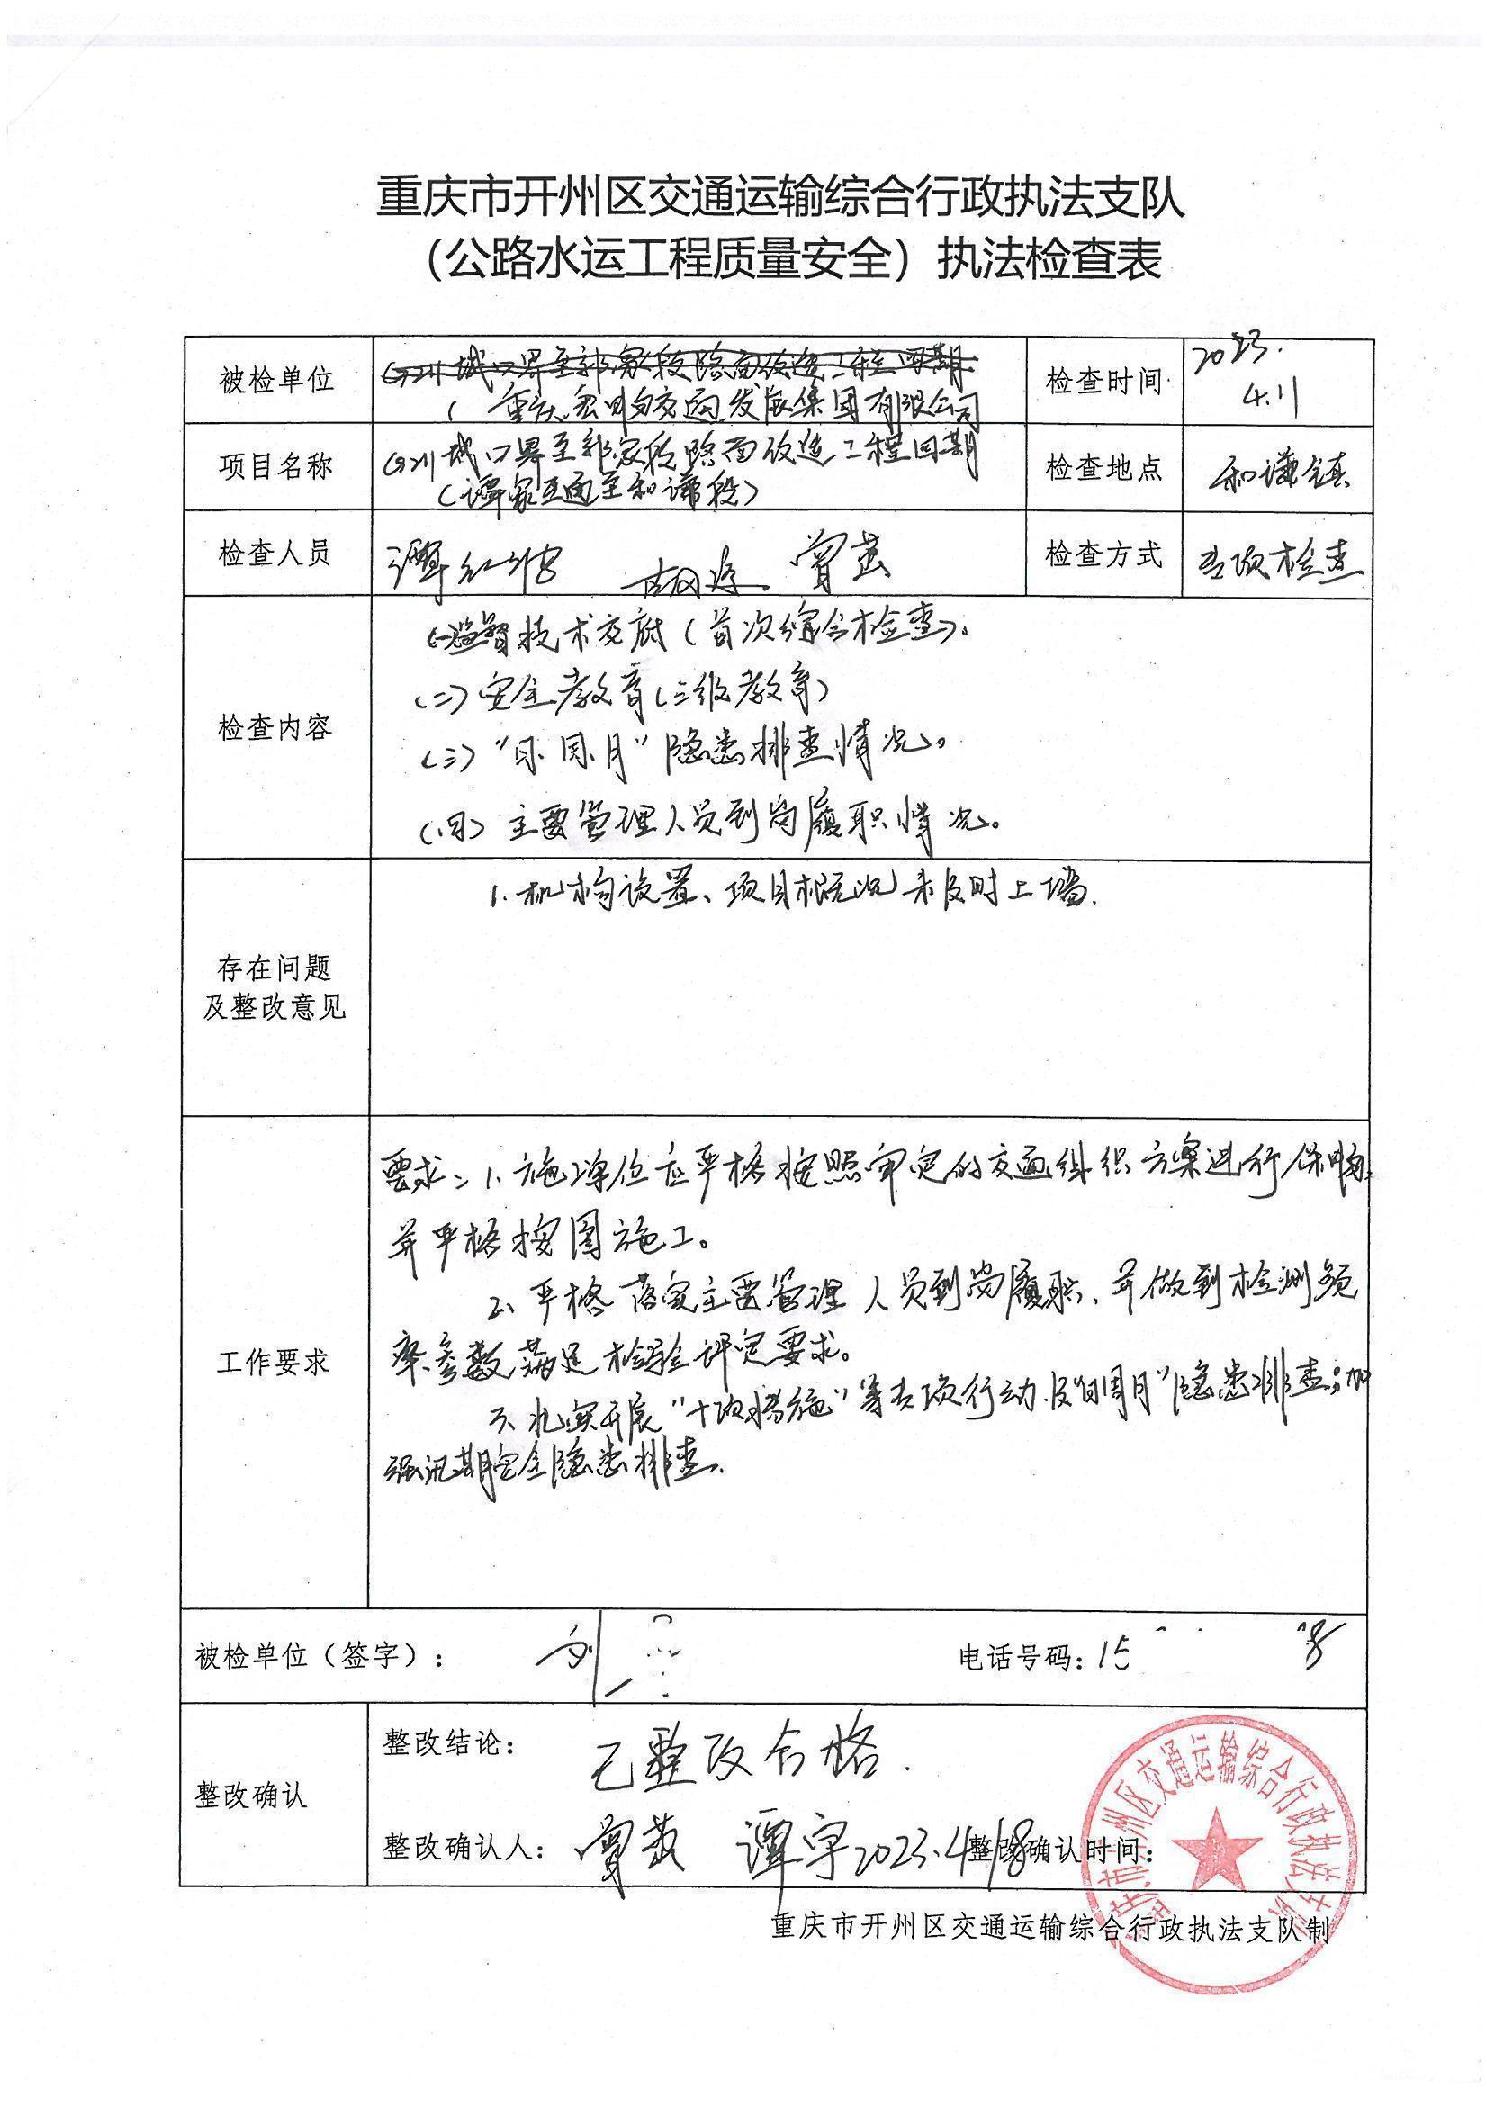 重庆市开州区交通运输综合行政执法支队
（公路水运工程质量安全）执法检查表
被检单位
G211城口界至郭家段路面改造工程四期
重庆开州交通发展集团有限公司
检查时间
2023.
4.11
项目名称
G211城口界至郭家段路面改造工程四期
（谭家互通至和谦段）
检查地点
和谦镇
检查人员
谭红 曾茂
检查方式
专项检查
检查内容
技术交底（首次综合检查）。
（二）安全教育（三级教育）
（三）“日.周.月”隐患排查情况。
（四）主要管理人员到岗履职情况。
存在问题
及整改意见
1.机构设置、项目概况未及时上墙.
工作要求
要求：1.施工单位应严格按照审定的交通组织方案进行保畅.
并严格按图施工。
2、严格落实主要管理人员到岗履职、并做到检测频
率.参数满足检验评定要求。
3、扎实开展“十项措施”等专项行动.及“日周月”隐患排查；加
强汛期安全隐患排查.
被检单位（签字）：
刘
电话号码：15 8
整改确认
整改结论：
已整改合格.
整改确认人：
曾茂 谭宇 2023.4.18
整改确认时间：
重庆市开州区交通运输综合行政执法支队
重庆市开州区交通运输综合行政执法支队制